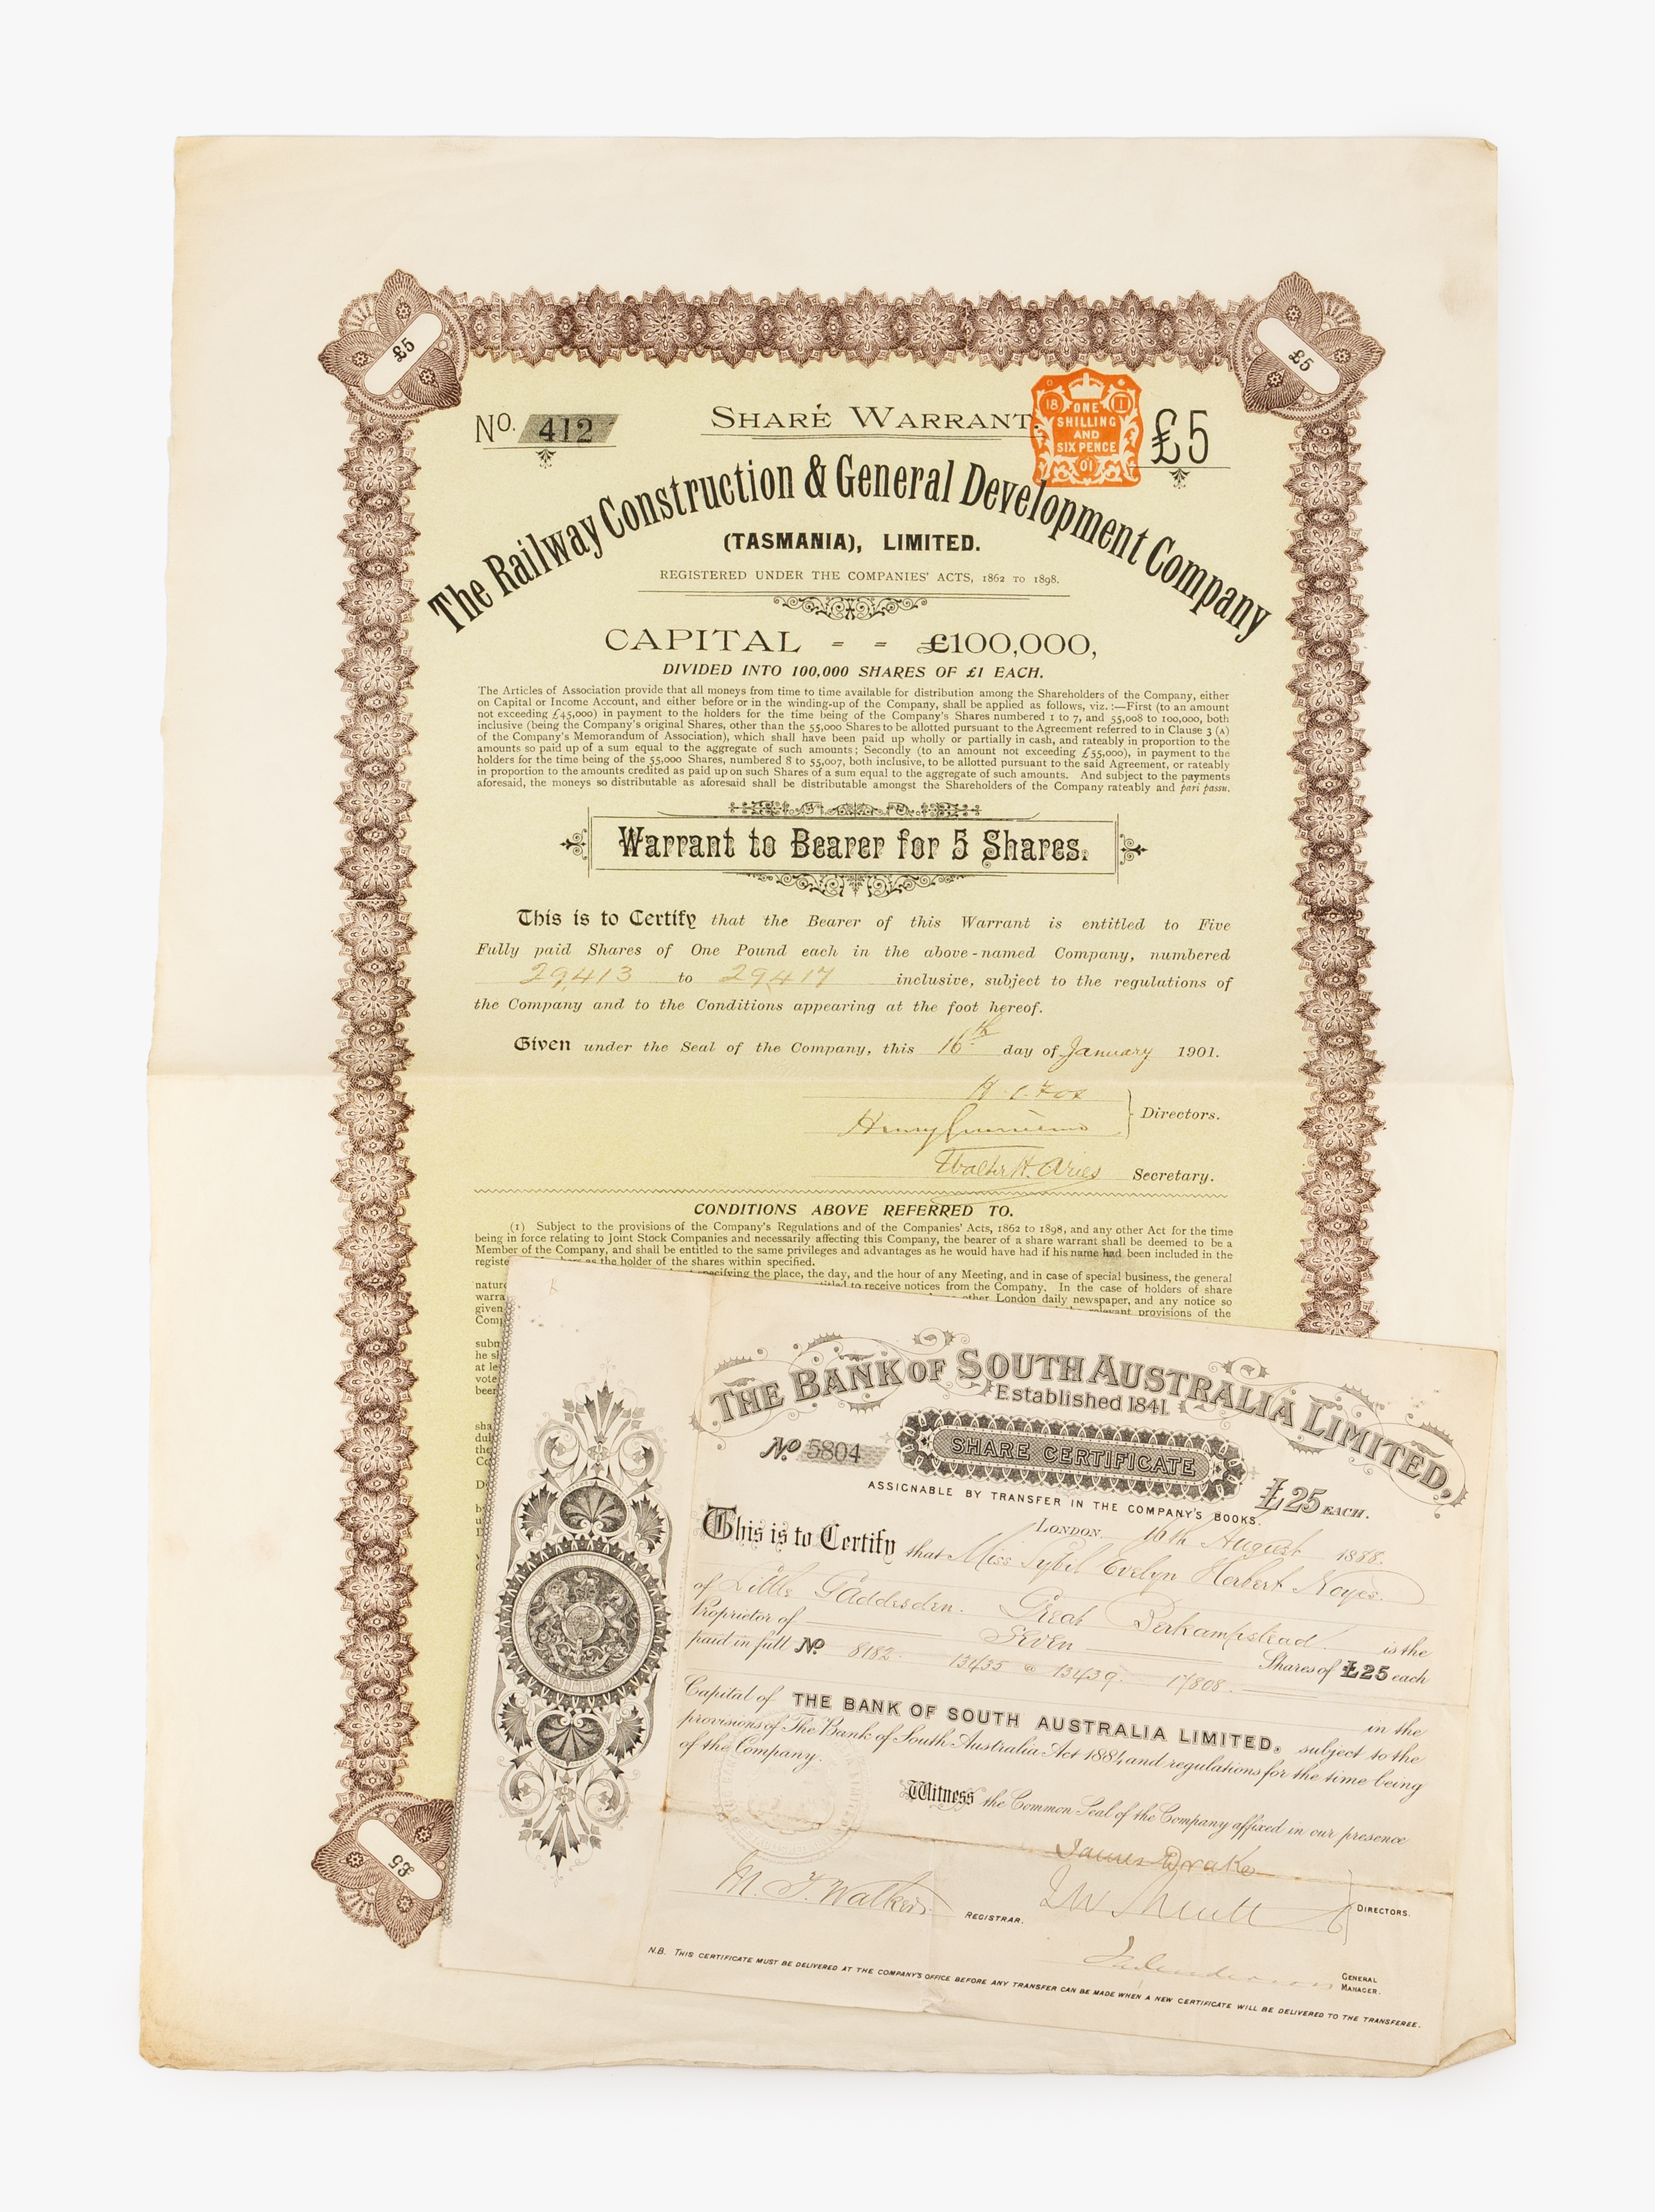 £5
£5
No. 412
SHARE WARRANT.
18 11
ONE
SHILLING
AND
SIX PENCE
01
£5
The Railway Construction & General Development Company
(TASMANIA), LIMITED.
REGISTERED UNDER THE COMPANIES' ACTS, 1862 TO 1898.
CAPITAL - - £100,000,
DIVIDED INTO 100,000 SHARES OF £1 EACH.
The Articles of Association provide that all moneys from time to time available for distribution among the Shareholders of the Company, either
on Capital or Income Account, and either before or in the winding-up of the Company, shall be applied as follows, viz.:—First (to an amount
not exceeding £45,000) in payment to the holders for the time being of the Company's Shares numbered 1 to 7, and 55,008 to 100,000, both
inclusive (being the Company's original Shares, other than the 55,000 Shares to be allotted pursuant to the Agreement referred to in Clause 3 (A)
of the Company's Memorandum of Association), which shall have been paid up wholly or partially in cash, and rateably in proportion to the
amounts so paid up of a sum equal to the aggregate of such amounts; Secondly (to an amount not exceeding £55,000), in payment to the
holders for the time being of the 55,000 Shares, numbered 8 to 55,007, both inclusive, to be allotted pursuant to the said Agreement, or rateably
in proportion to the amounts credited as paid up on such Shares of a sum equal to the aggregate of such amounts. And subject to the payments
aforesaid, the moneys so distributable as aforesaid shall be distributable amongst the Shareholders of the Company rateably and pari passu.
Warrant to Bearer for 5 Shares.
This is to Certify that the Bearer of this Warrant is entitled to Five
Fully paid Shares of One Pound each in the above-named Company, numbered
29,413 to 29,417 inclusive, subject to the regulations of
the Company and to the Conditions appearing at the foot hereof.
Given under the Seal of the Company, this 16th day of January 1901.
H. C. Fox
Henry
Directors.
Walter H. Aries Secretary.
CONDITIONS ABOVE REFERRED TO.
(1) Subject to the provisions of the Company's Regulations and of the Companies' Acts, 1862 to 1898, and any other Act for the time
being in force relating to Joint Stock Companies and necessarily affecting this Company, the bearer of a share warrant shall be deemed to be a
Member of the Company, and shall be entitled to the same privileges and advantages as he would have had if his name had been included in the
registe as the holder of the shares within specified.
specifying the place, the day, and the hour of any Meeting, and in case of special business, the general
nature to receive notices from the Company. In the case of holders of share
warra other London daily newspaper, and any notice so
given relevant provisions of the
Comp
subm
he sh
at le
vote
been
sha
dul
the
Co
D
£5
THE BANK OF SOUTH AUSTRALIA LIMITED,
Established 1841.
No 5804
SHARE CERTIFICATE
£25 EACH.
ASSIGNABLE BY TRANSFER IN THE COMPANY'S BOOKS.
LONDON, 16th August 1888.
This is to Certify that Miss Sybil Evelyn Herbert Noyes
of Little Gaddesden. Great Berkampstead. is the
Proprietor of Seven Shares of £25 each
paid in full No 8182. 13435 @ 13439. 17808.
Capital of THE BANK OF SOUTH AUSTRALIA LIMITED, in the
provisions of The Bank of South Australia Act 1884, and regulations for the time being subject to the
of the Company.
Witness the Common Seal of the Company affixed in our presence
James Drake
M. T. Walker. REGISTRAR.
DIRECTORS.
GENERAL
MANAGER.
N.B. THIS CERTIFICATE MUST BE DELIVERED AT THE COMPANY'S OFFICE BEFORE ANY TRANSFER CAN BE MADE WHEN A NEW CERTIFICATE WILL BE DELIVERED TO THE TRANSFEREE.